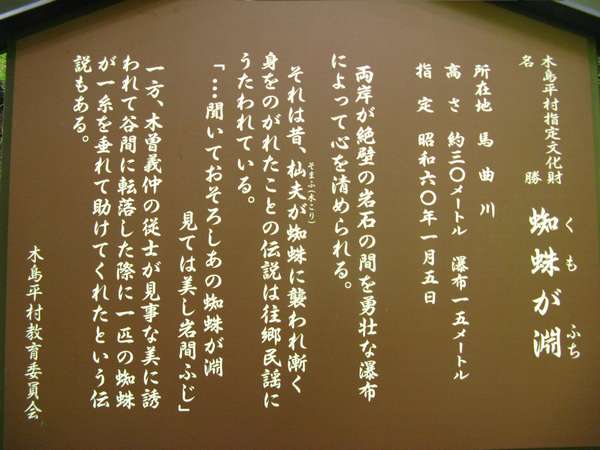 木島平村指定文化財
名勝 蜘蛛が淵
くも ふち
所在地 馬曲川
高さ 約三〇メートル 瀑布一五メートル
指定 昭和六〇年一月五日
両岸が絶壁の岩石の間を勇壮な瀑布
によって心を清められる。
それは昔、杣夫が蜘蛛に襲われ漸く
そまふ(木こり)
身をのがれたことの伝説は往郷民謡に
うたわれている。
「…聞いておそろしあの蜘蛛が淵
見ては美し岩間ふじ」
一方、木曽義仲の従士が見事な美に誘
われて谷間に転落した際に一匹の蜘蛛
が一糸を垂れて助けてくれたという伝
説もある。
木島平村教育委員会